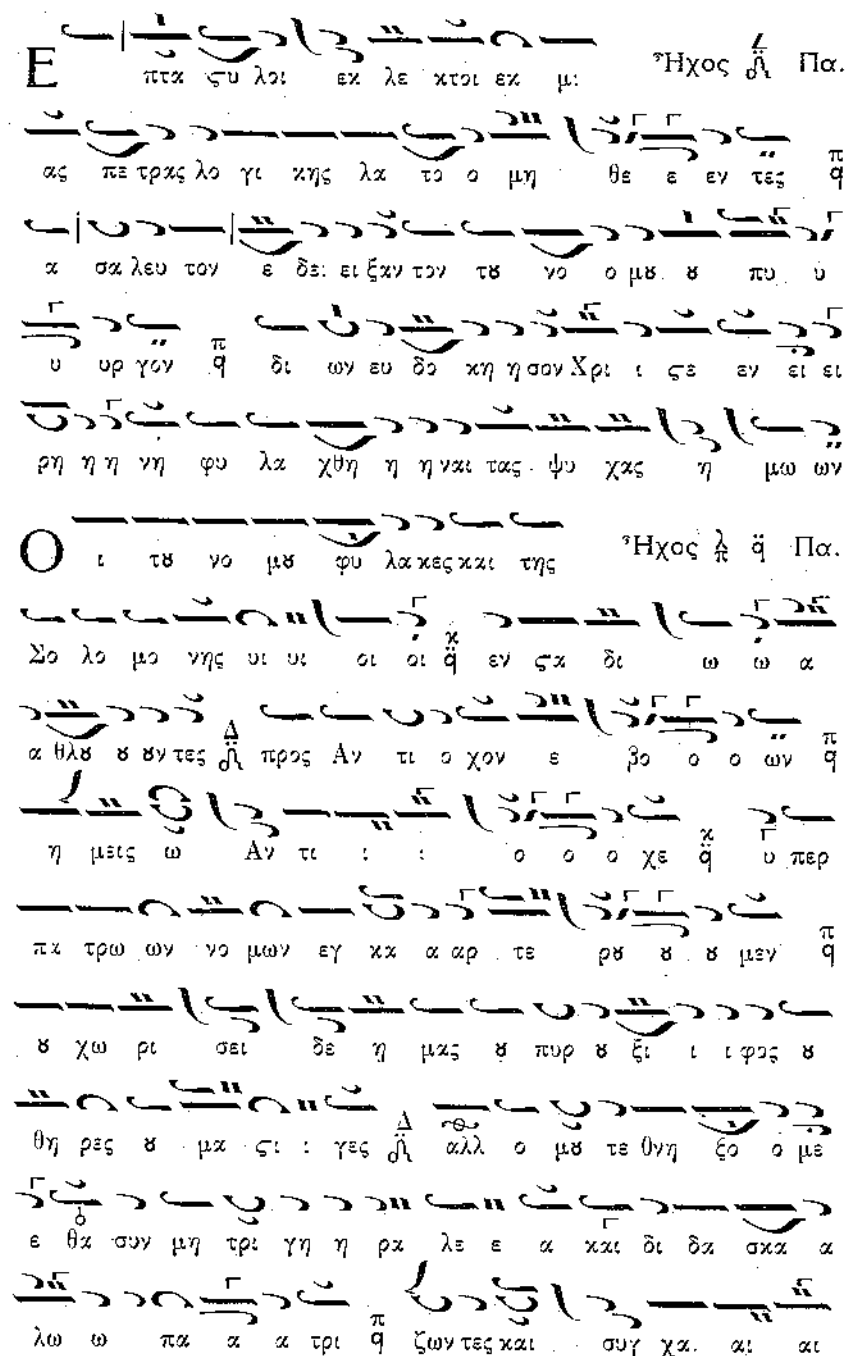 Ε πτα ϛυ λοι εκ λε κτοι εκ μι Ἦχος Πα.
ας πε τρας λο γι κης λα το ο μη θε ε εν τες π q
α σα λευ τον ε δει ει ξαν τον τȣ νο ο μȣ ȣ πυ υ
υ υρ γον π q δι ων ευ δο κη η σον Χρι ι ϛε εν ει ει
ρη η η νη φυ λα χθη η η ναι τας ψυ χας η μω ων
Ο ι τȣ νο μȣ φυ λα κες και της Ἦχος λ π q Πα.
Σο λο μο νης υι υι οι οι κ q εν ϛα δι ω ω α
α θλȣ ȣ ȣν τες Δ προς Αν τι ο χον ε βο ο ο ων π q
η μεις ω Αν τι ι ι ο ο ο χε κ q υ περ
πα τρω ων νο μων εγ κα α αρ τε ρȣ ȣ ȣ μεν π q
ȣ χω ρι σει δε η μας ȣ πυρ ȣ ξι ι ι φος ȣ
θη ρες ȣ μα ϛι ι γες Δ αλλ ο μȣ τε θνη ξο ο με
ε θα συν μη τρι γη η ρα λε ε α και δι δα σκα α
λω ω πα α α τρι π q ζων τες και συγ χα αι αι